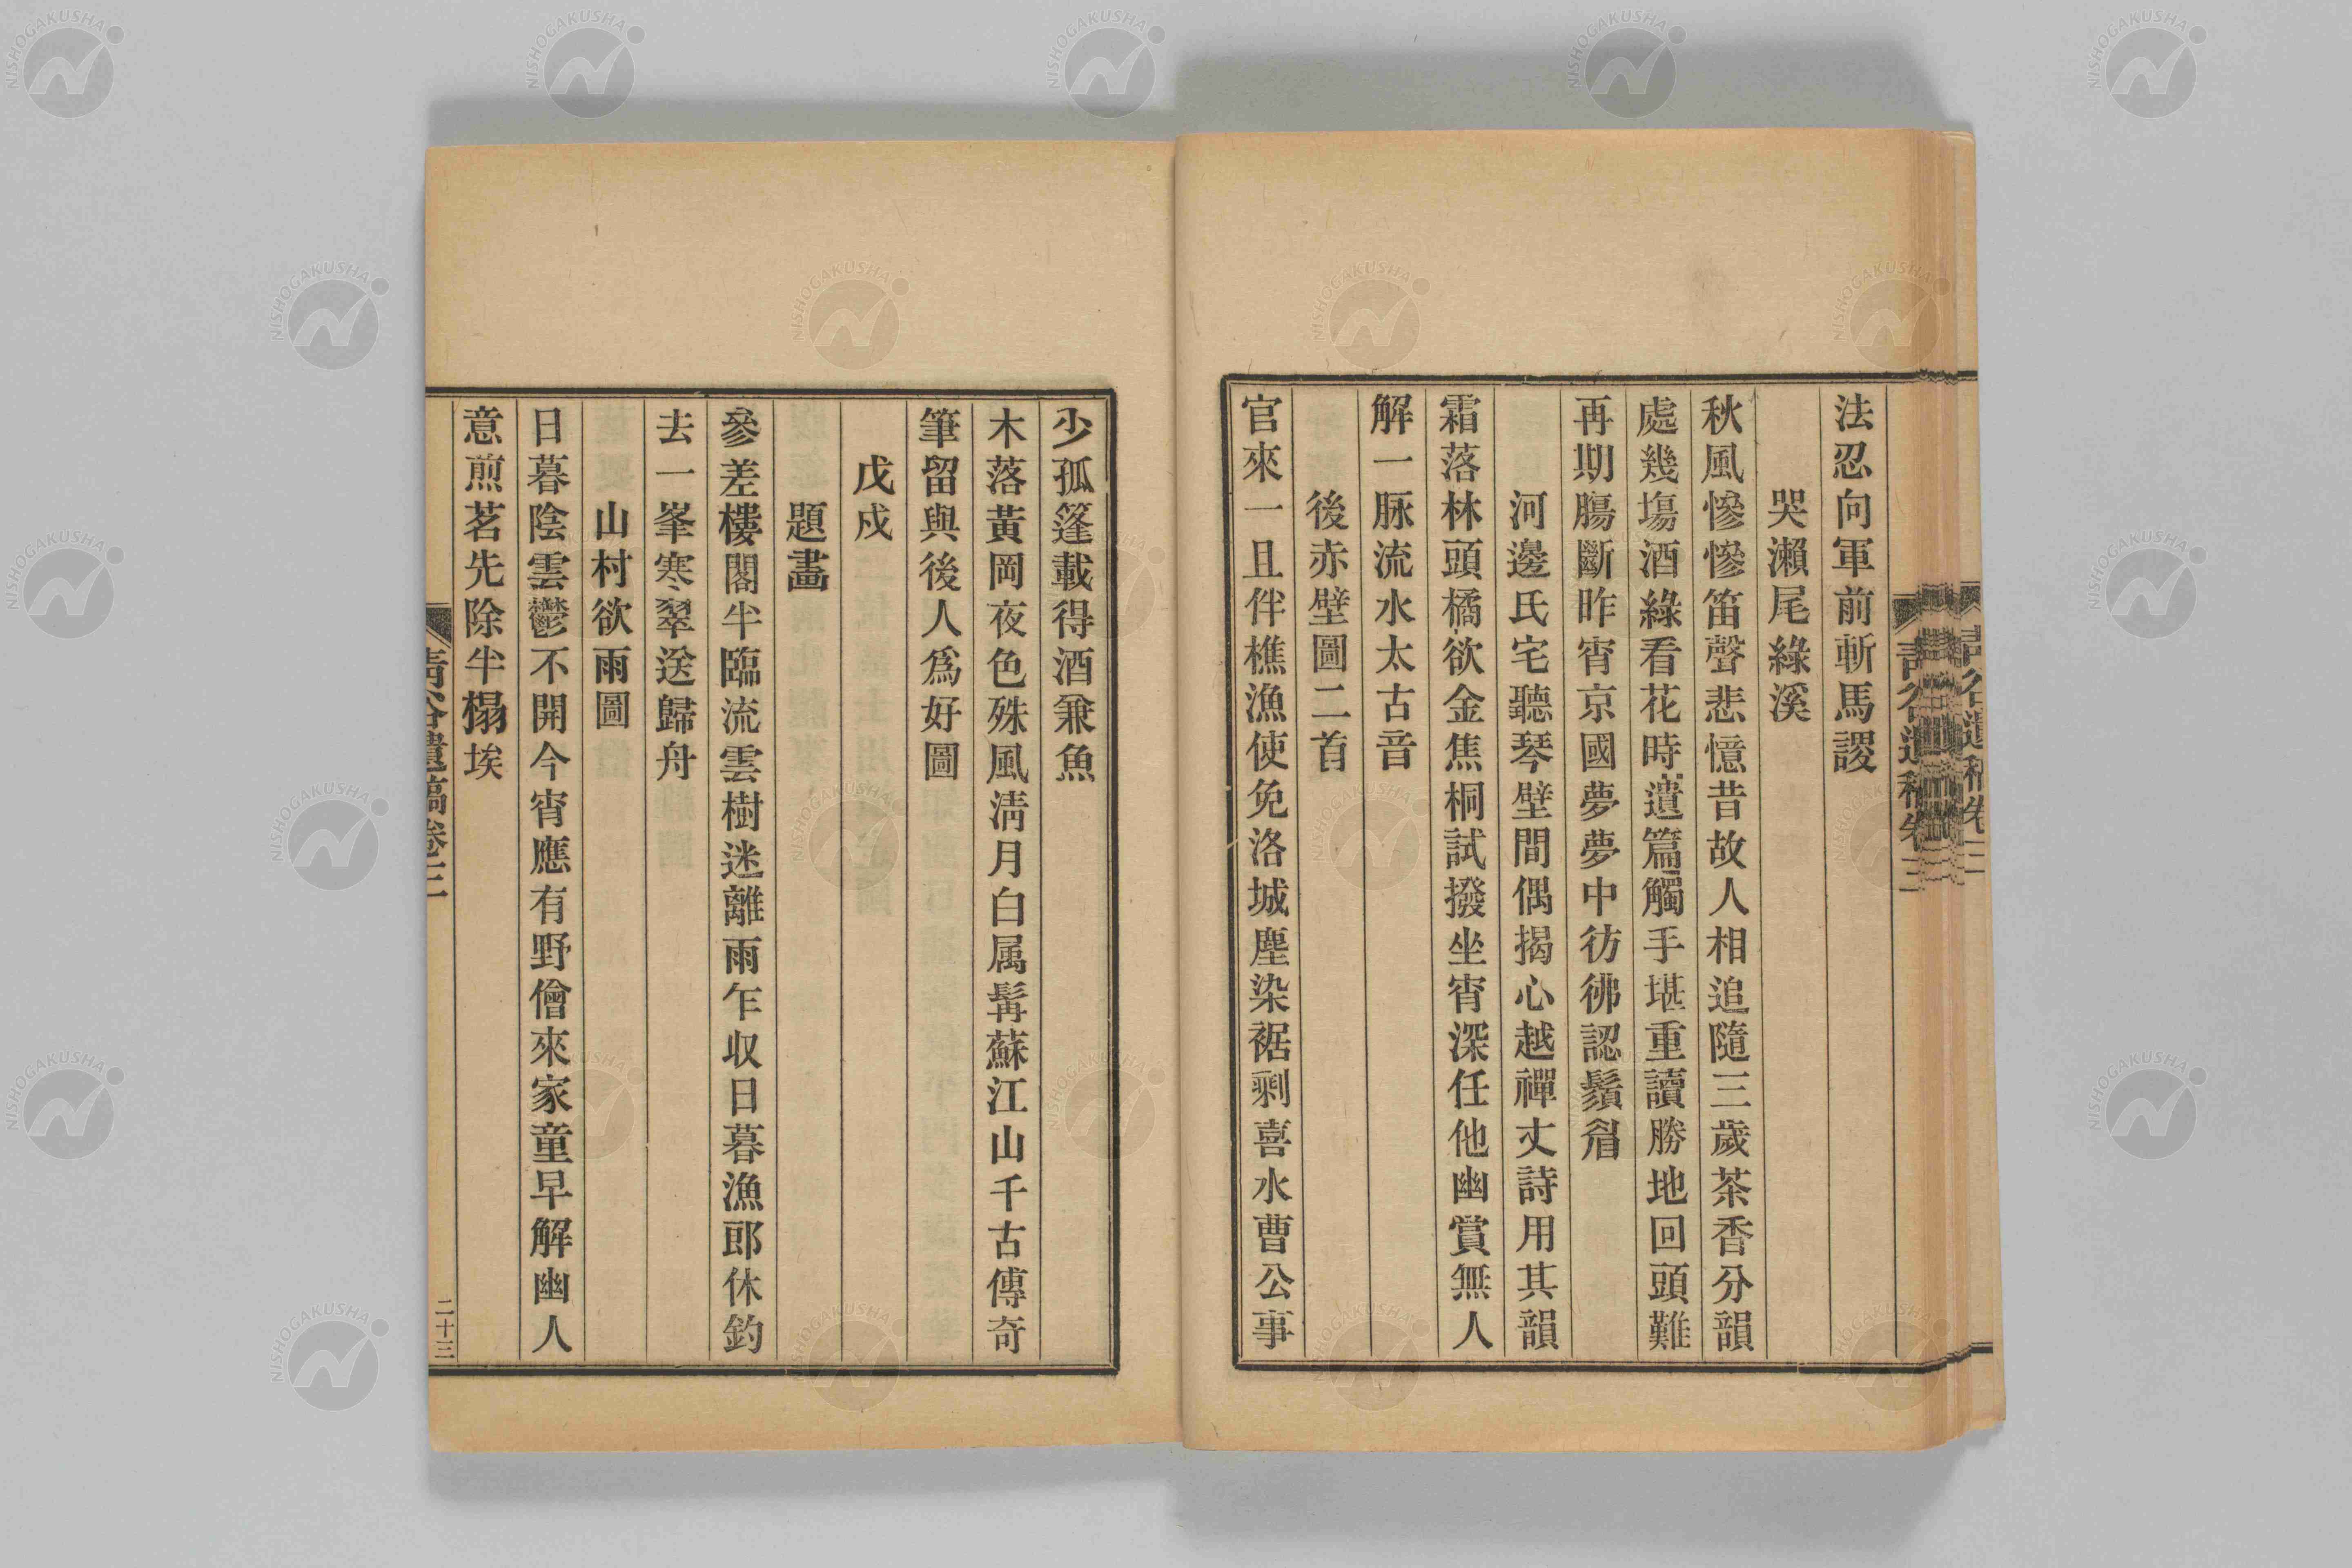 法忍向軍前斬馬謖
哭瀨尾綠溪
秋風慘慘笛聲悲憶昔故人相追隨三歲茶香分韻
處幾塲酒綠看花時遺篇觸手堪重讀勝地回頭難
再期膓斷昨宵京國夢夢中彷彿認鬚眉
河邊氏宅聽琴壁間偶揭心越禪丈詩用其韻
霜落林頭橘欲金焦桐試撥坐宵深任他幽賞無人
解一脈流水太古音
後赤壁圖二首
官來一且伴樵漁使免洛城塵染裾剩喜水曹公事
少孤篷載得酒兼魚
木落黃岡夜色殊風淸月白属髯蘇江山千古傳奇
筆留與後人爲好圖
戊戍
題畵
參差樓閣半臨流雲樹迷離雨乍収日暮漁郎休釣
去一峯寒翠送歸舟
山村欲雨圖
日暮陰雲鬱不開今宵應有野僧來家童早解幽人
意煎茗先除半榻埃
靑谷遺稿卷三
二十三
NISHOGAKUSHA